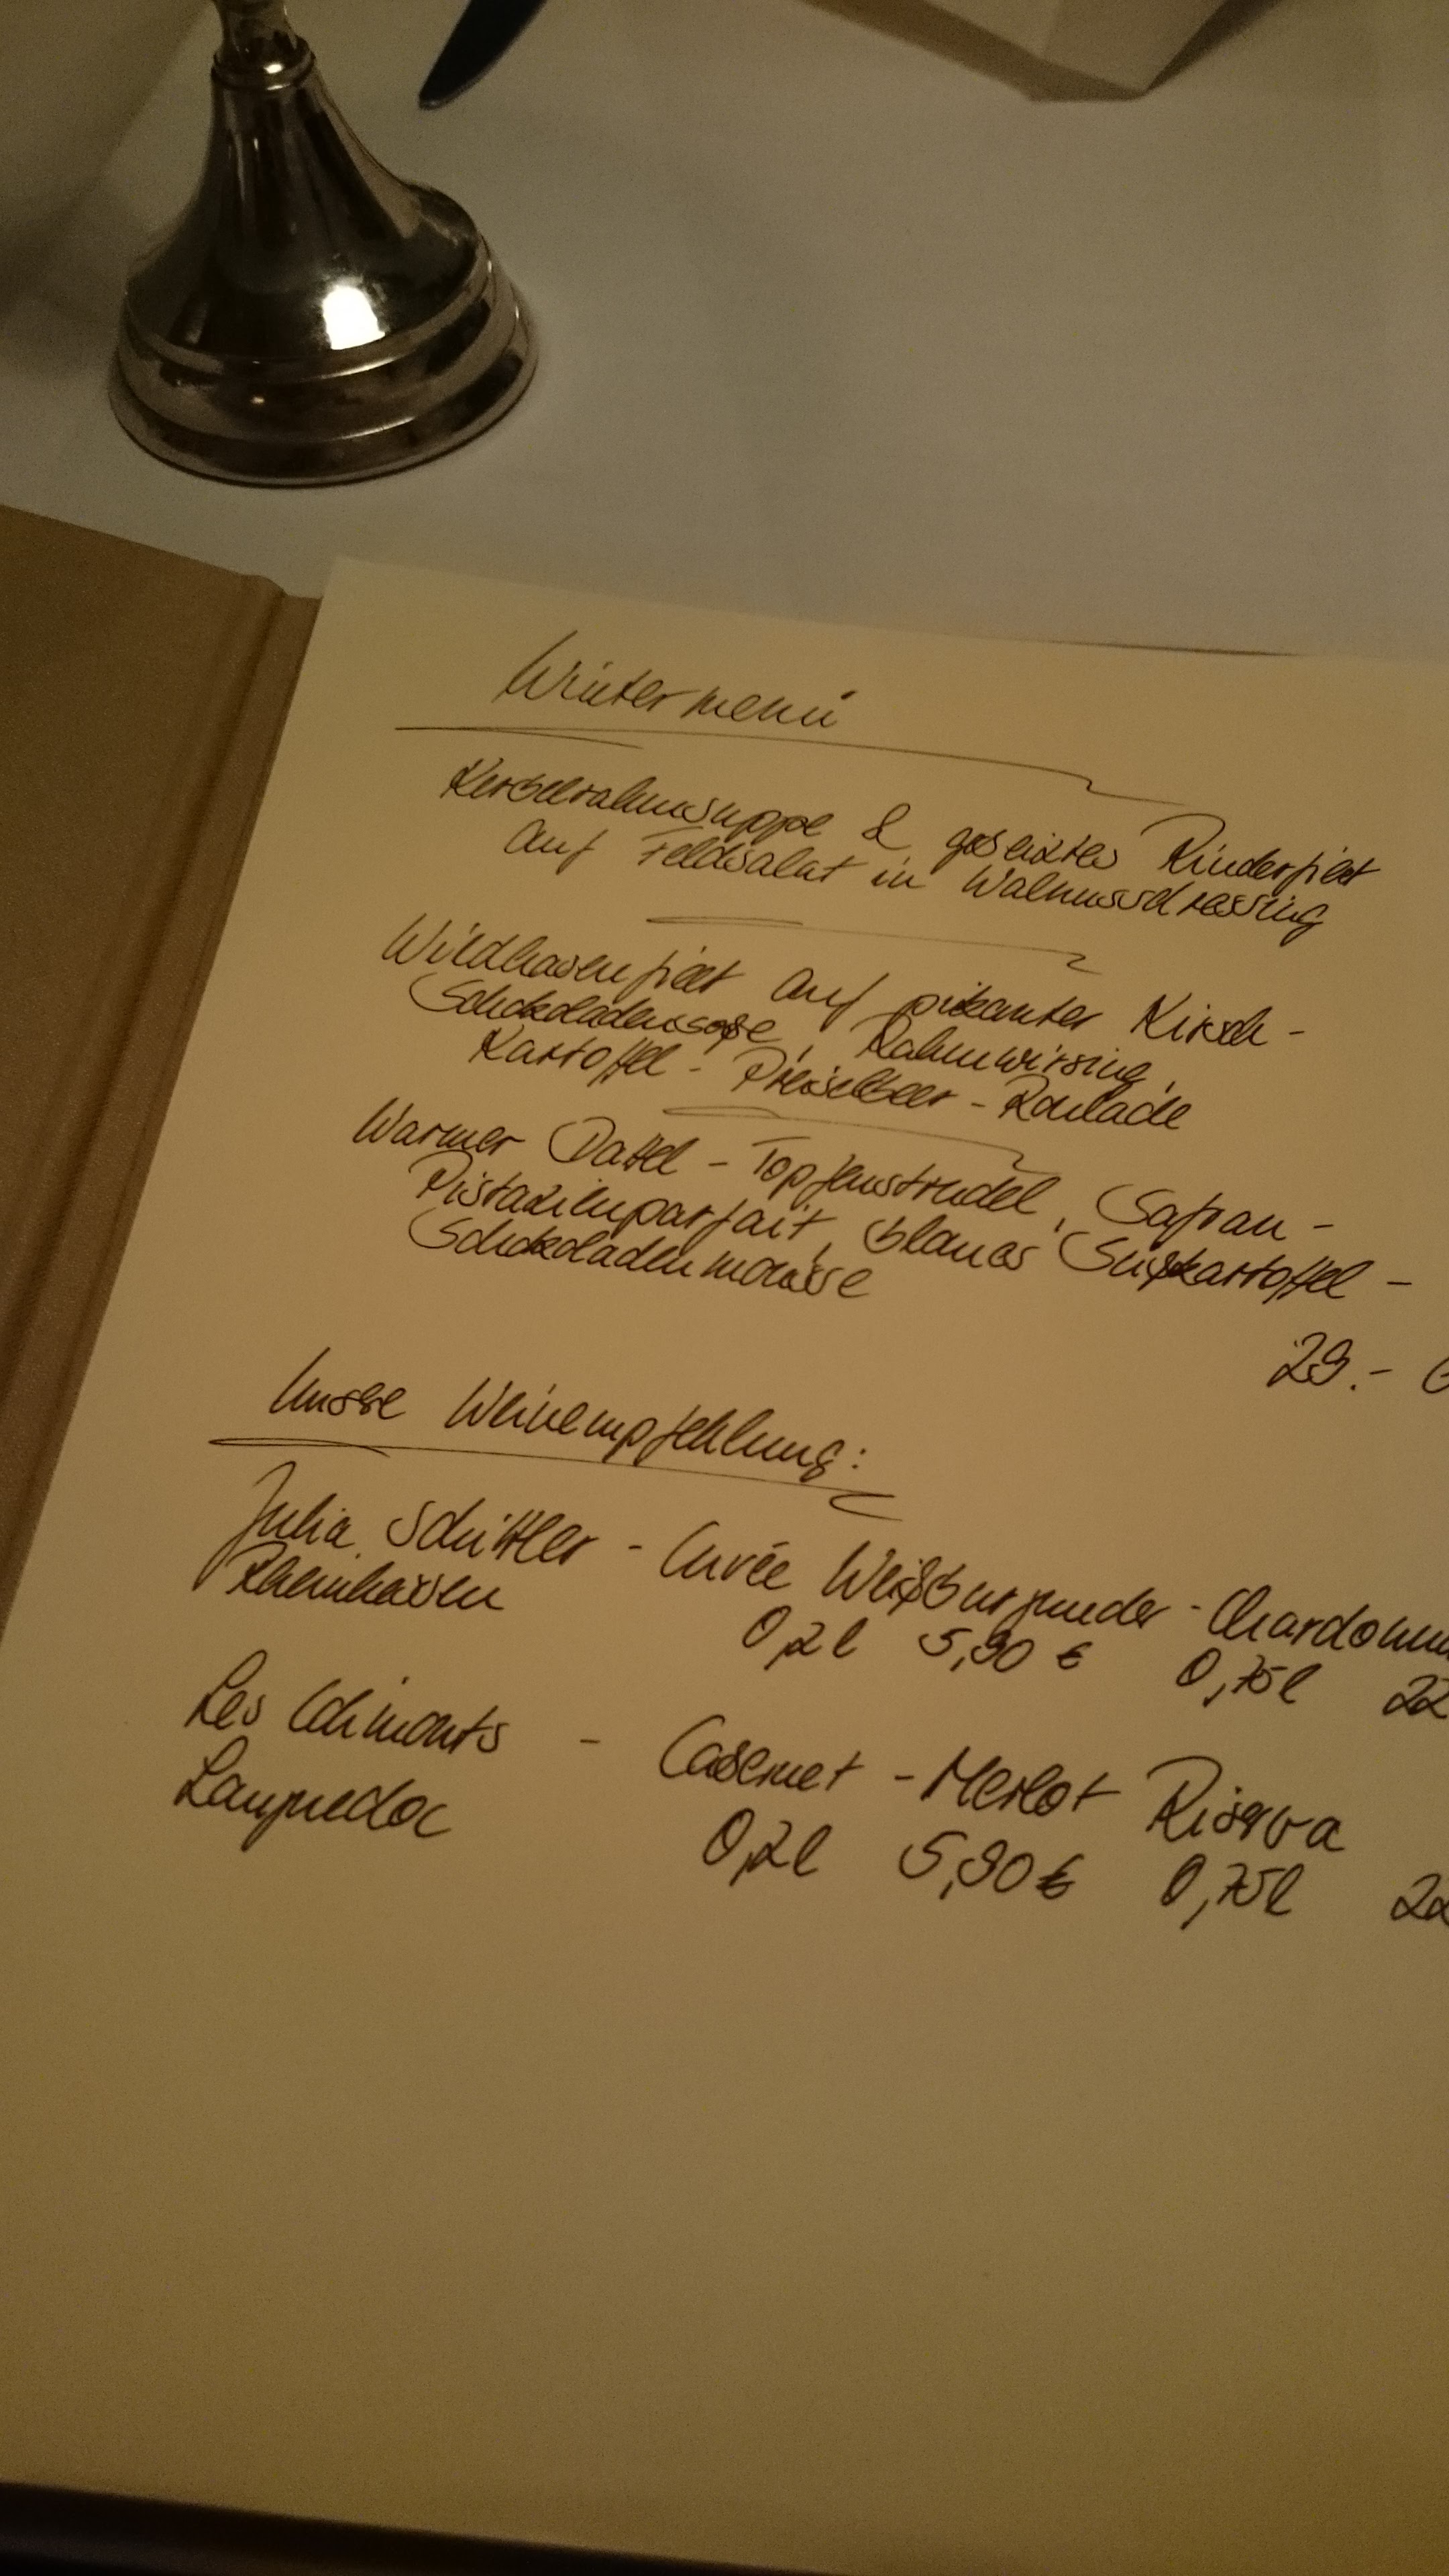 Wintermenü
Kerbelrahmsuppe & gebeiztes Rinderfilet
auf Feldsalat in Walnussdressing
Wildhasenfilet auf pikanter Kirsch-
Schokoladensoße, Rahmwirsing,
Kartoffel - Preiselbeer - Roulade
Warmer Dattel - Topfenstrudel, Safran -
Pistazienparfait, blaues Süßkartoffel -
Schokoladenmousse
29.-
Unsere Weinempfehlung:
Julia Schittler - Cuvée Weißburgunder - Chardonn
Rheinhessen
0,2l 5,90 € 0,75l 22
Les - Cabernet - Merlot Riserva
Languedoc
0,2l 5,90 € 0,75l 22